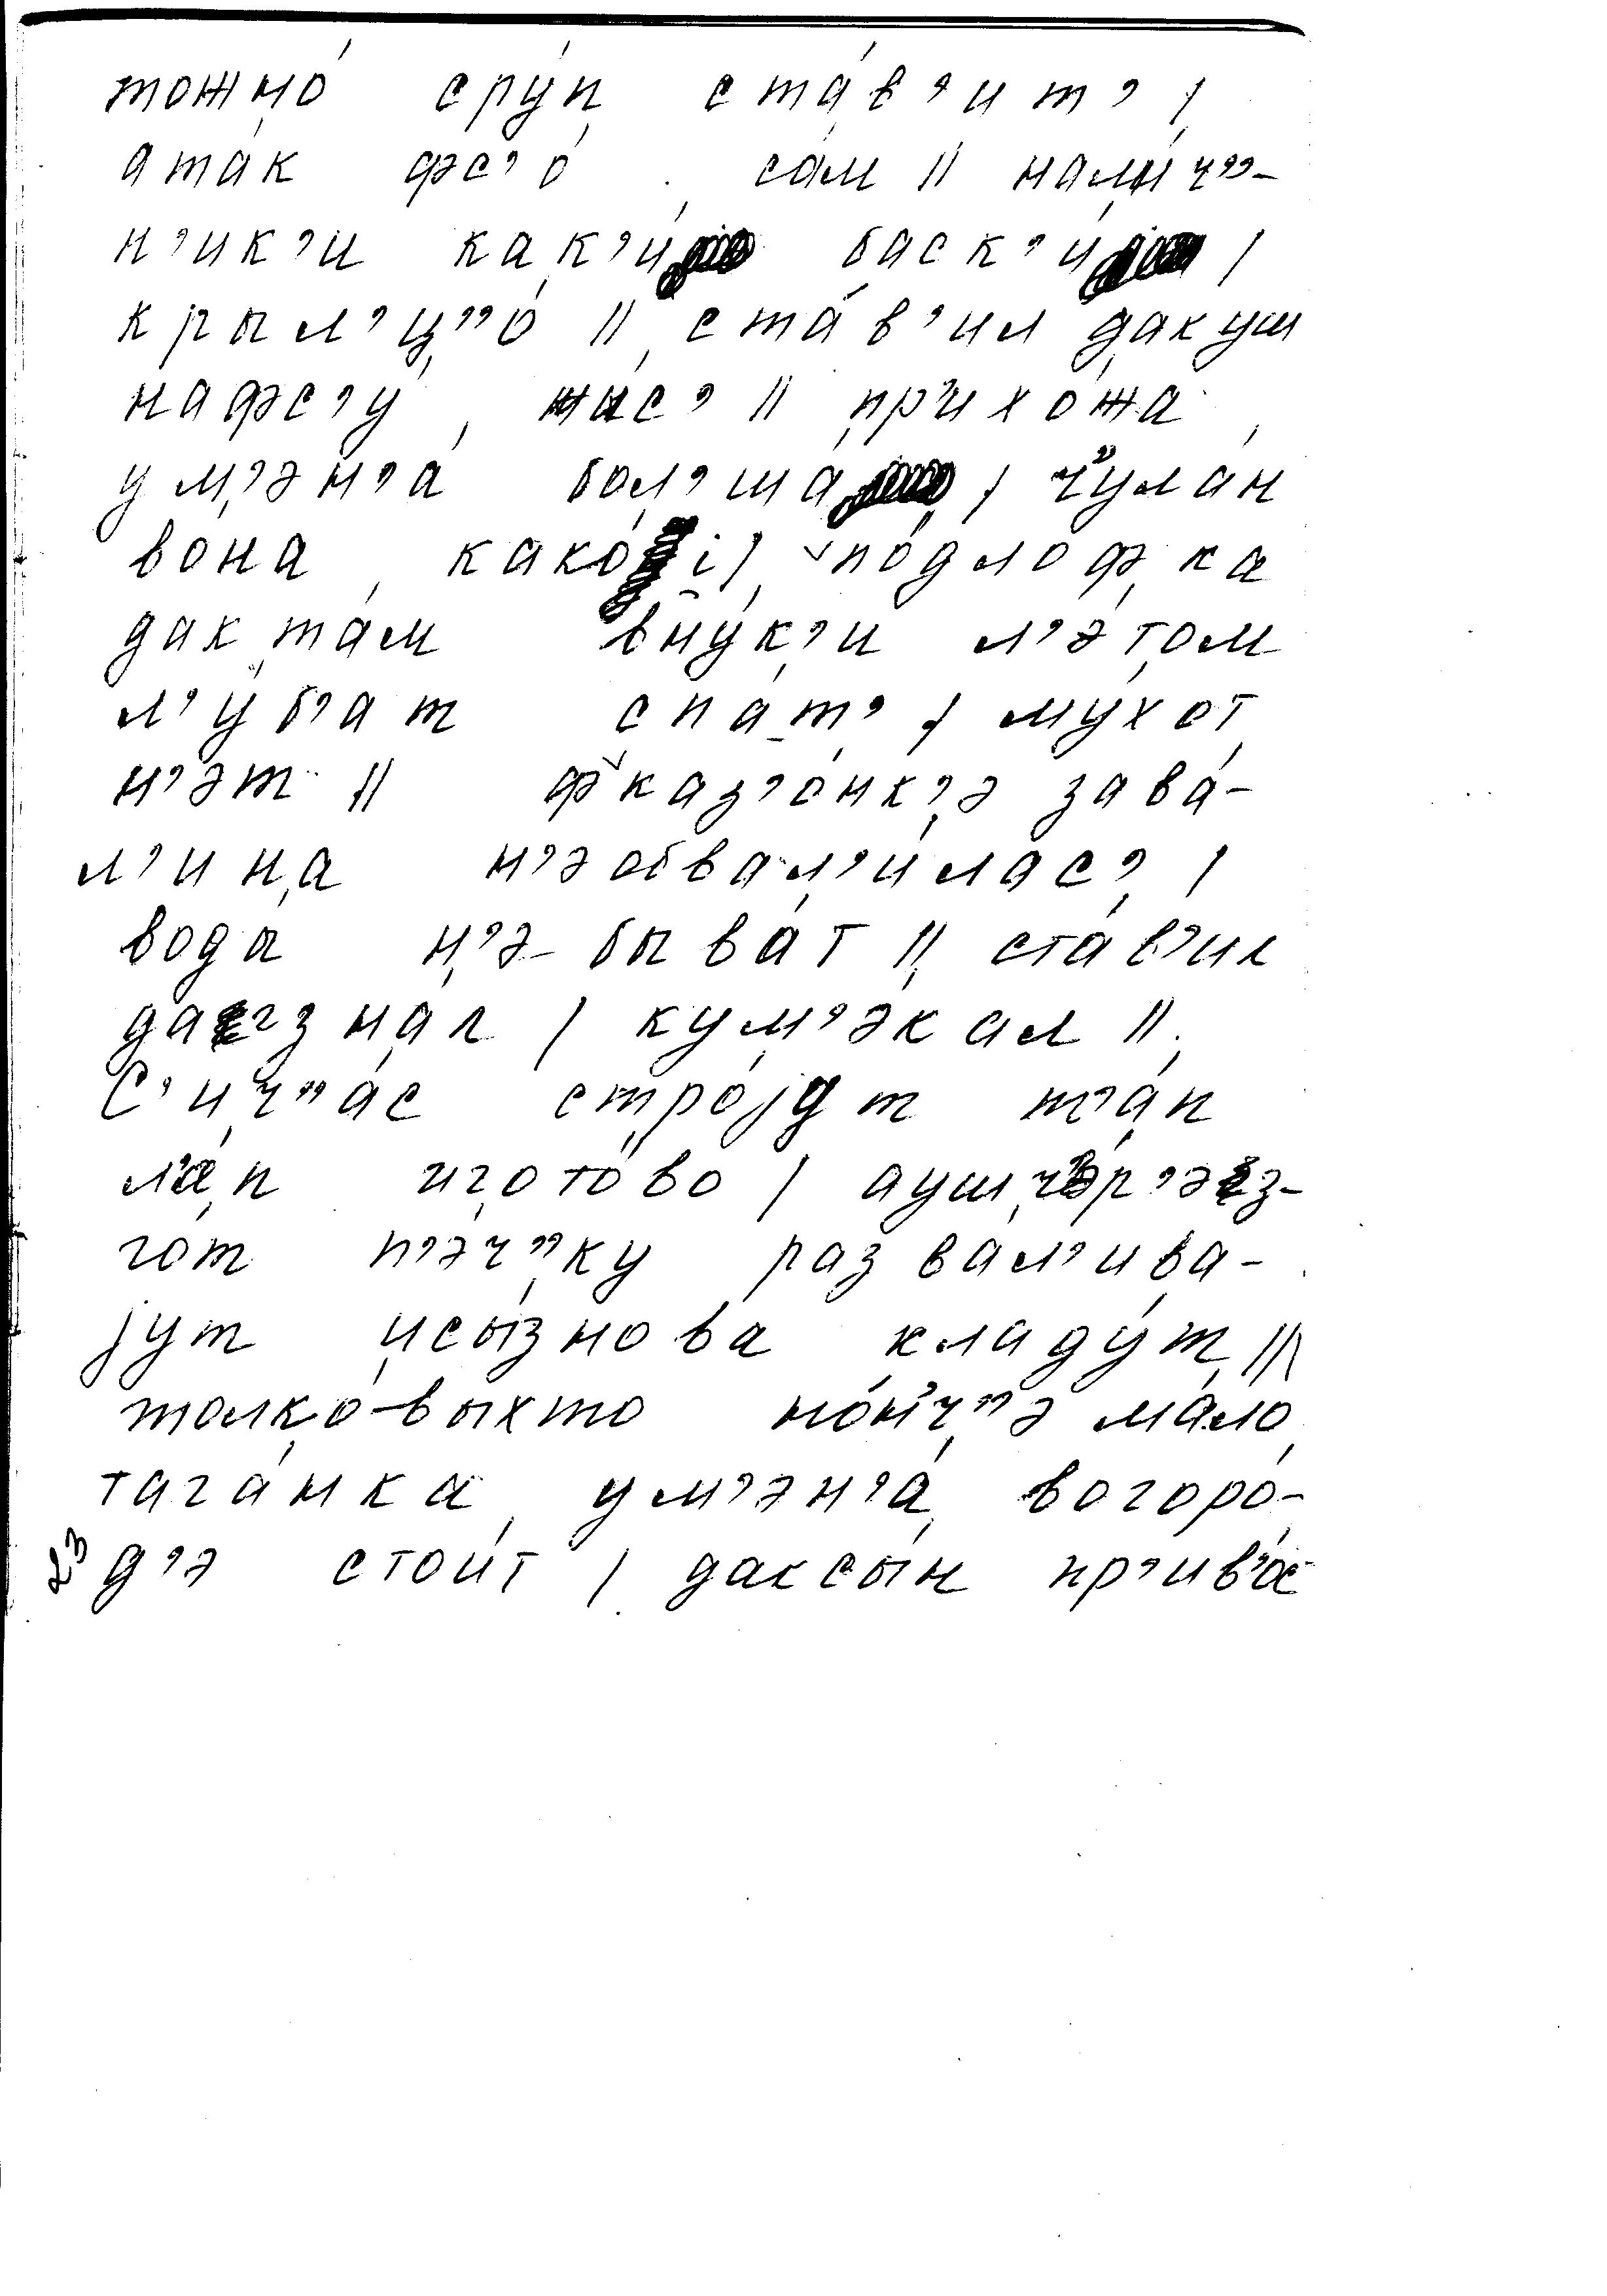 тожно́ сру́п ста́в’ит’ /
ата́к фс’о́ са́м // нали́ч’’-
н’ик’и как’и́ баск’и́ /
крыл’ц’’о́ // ста́в’ил дакуш
нафс’у́ жыс’ // пр’ихо́жа
ум’эн’а́ бол’ша́ / ч’’ула́н
во́на како́i / по́длофка
дак та́м вну́к’и л’э́том
л’у́б’ат спа́т’ / му́хот
н’э́т // фказ’о́нк’э зава́-
л’ина н’эобвал’и́лас’ /
вода́ н’э-быва́т // ста́в’ил
дагзнал / кум’э́кал //
С’ич’’а́с стро́jат т’а́п
л’а́п игото́во / ауш ч’’э́р’эз-
го́т п’э́ч’’ку разва́л’ива-
jут исы́знова кладу́т //
толко́-выхто но́н’ч’’э ма́ло
тага́нка ум’эн’а́ вогоро́-
д’э стои́т / даксы́н пр’ив’о́с
23